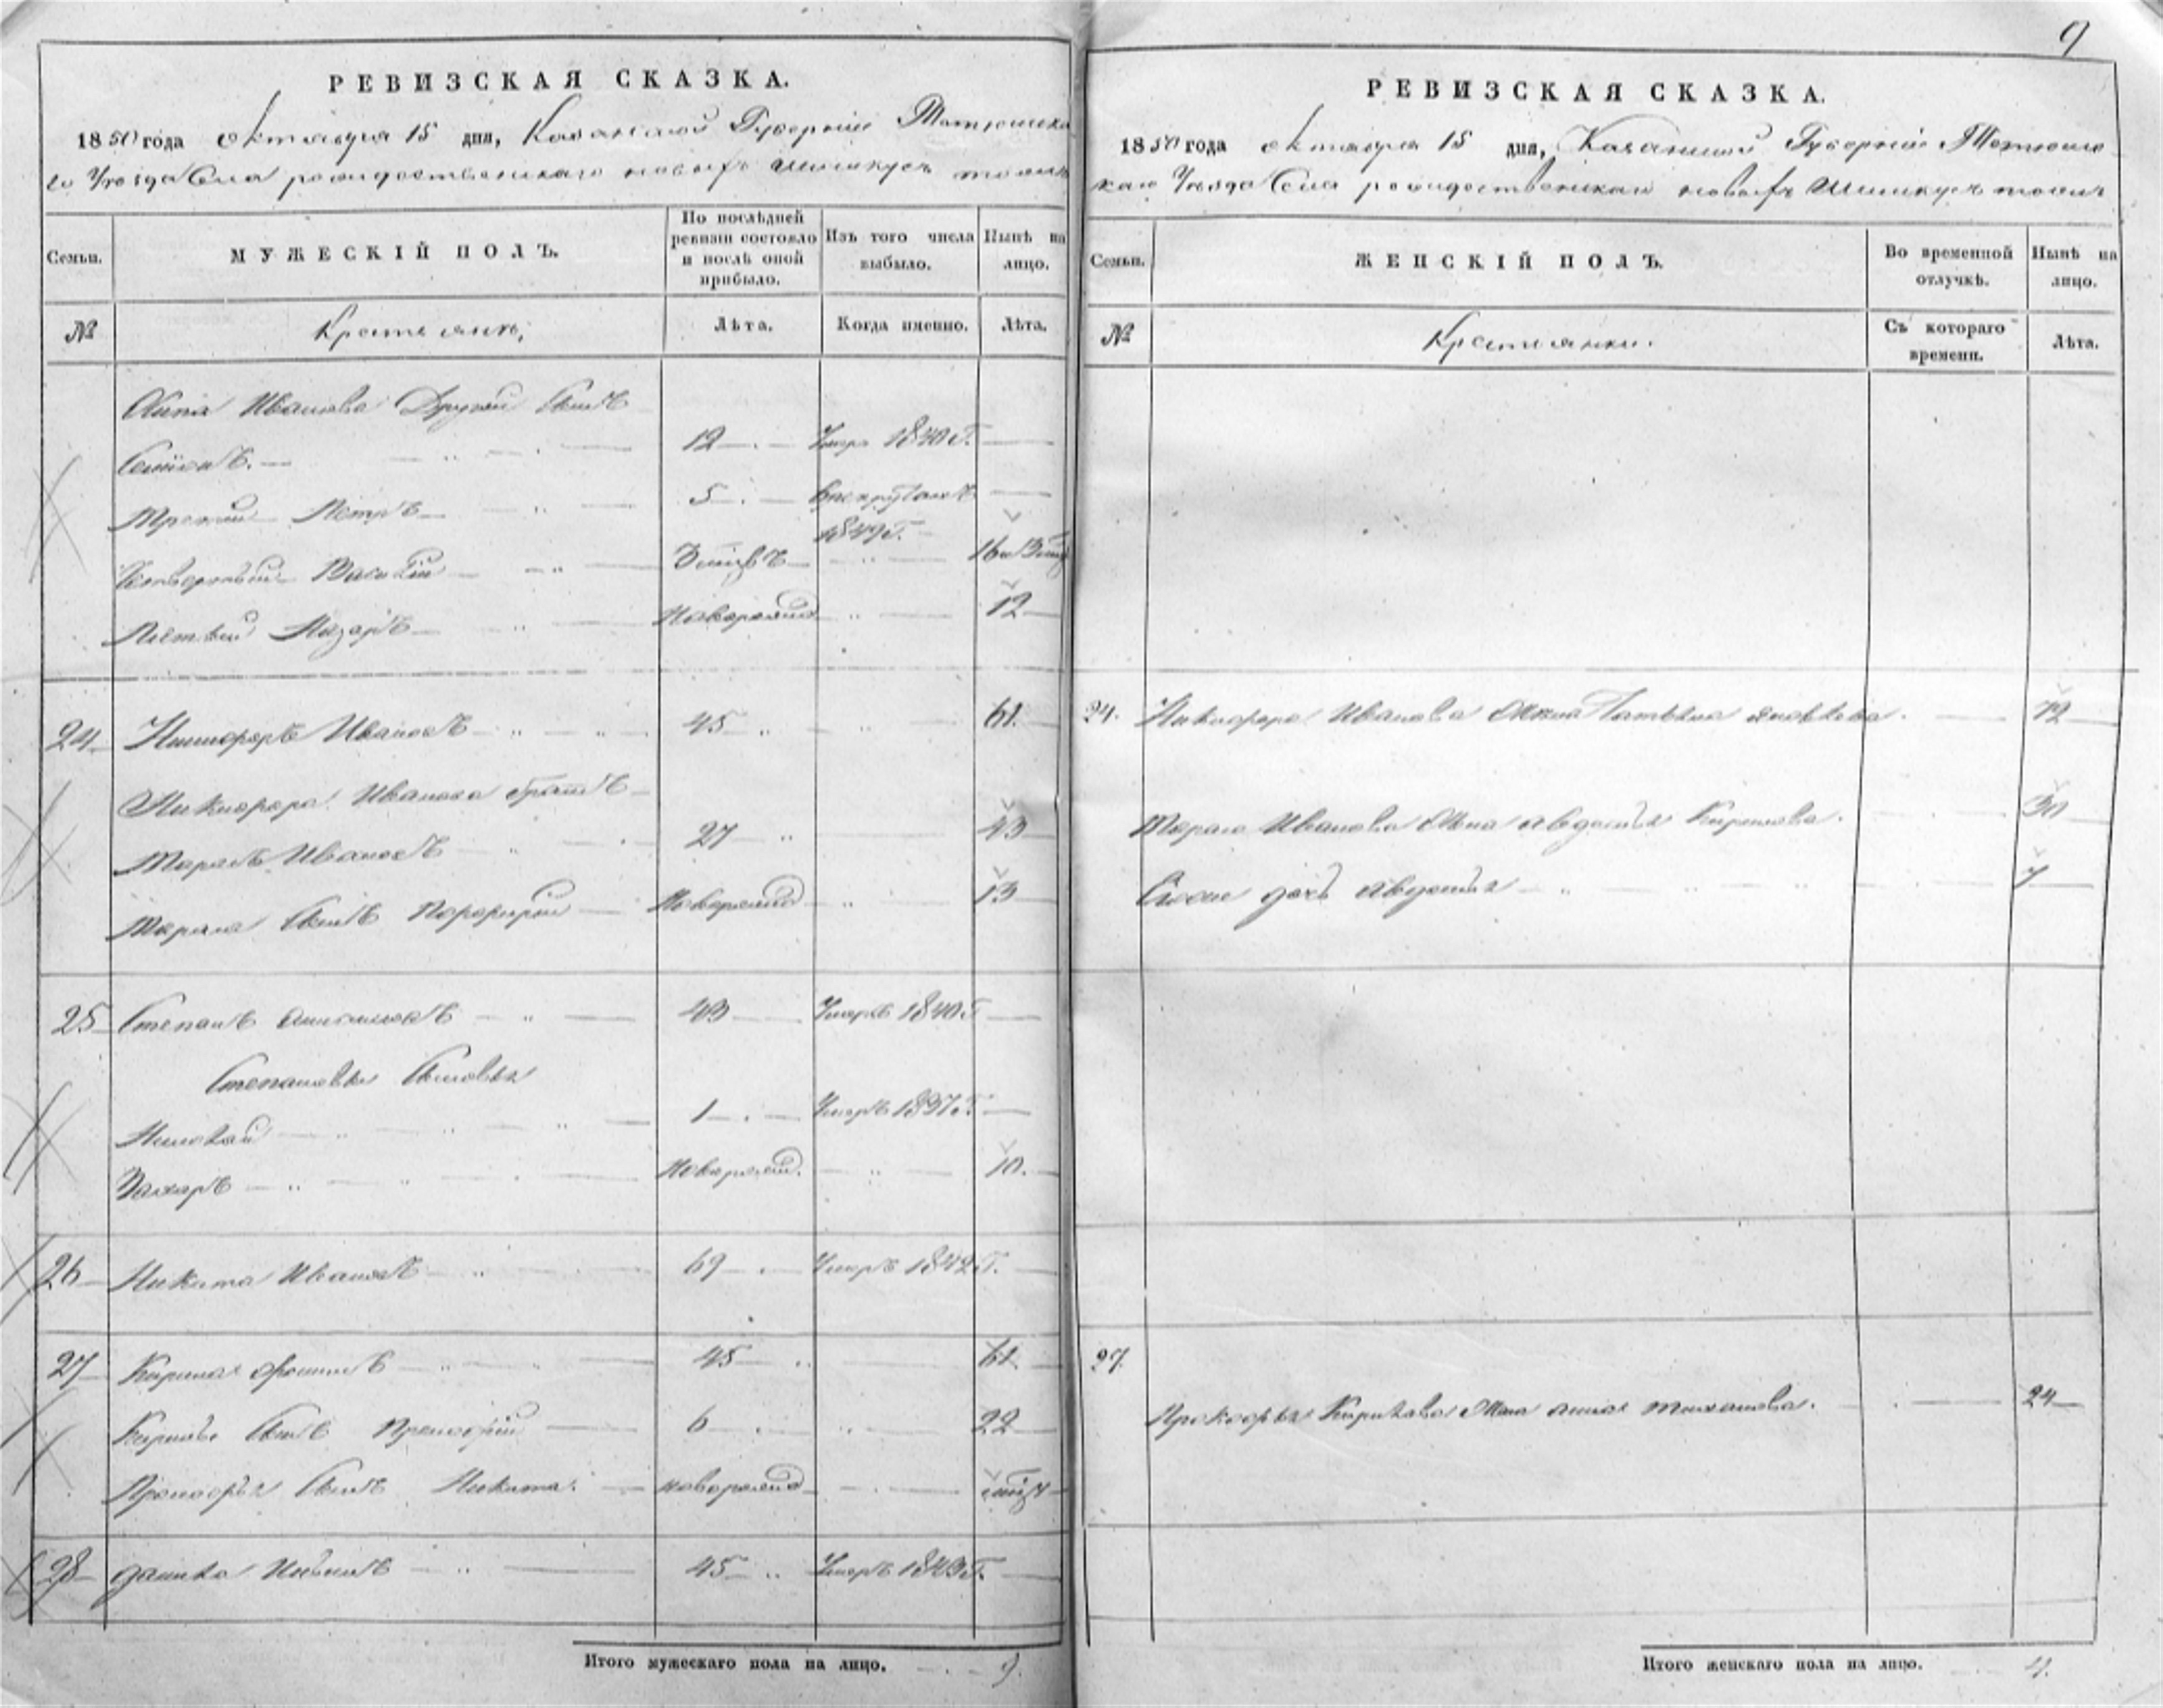 9
РЕВИЗСКАЯ СКАЗКА.
1850 года октября 15 дня, Казанской Губерніи
Уезда Села рождественскаго новыхъ
Семьи. МУЖЕСКІЙ ПОЛЪ. По послѣдней ревизіи состояло и послѣ оной прибыло. Изъ того числа выбыло. Нынѣ на лицо.
№ Крестьяне, Лѣта. Когда именно. Лѣта.
Ивана Другой сынъ
Семенъ. 12 Умеръ 1840 г.
Третий Петръ 5
1849 г.
Четвертый Василій 16
Пятый Назаръ Новорожд 12
24 Никифоръ Ивановъ 45 61
Никифора Иванова братъ
Тарасъ Ивановъ 27 43
Тараса сынъ Порфирий Новорожд 13
25 Степанъ 43 Умеръ 1840 г
Степановы сыновья
Николай 1 Умеръ 1837 г.
Захаръ Новорожд. 10.
26 Никита Ивановъ 69 Умеръ 1842 г.
27 Кирила 45 61
Кирилы сынъ Прокофий 6 22
Прокофья сынъ Никита новорожд
28 данила 45 Умеръ 1843 г.
Итого мужескаго пола на лицо. 9.
РЕВИЗСКАЯ СКАЗКА.
1850 года октября 15 дня, Казанской Губерніи
Уезда Села рождественскаго новыхъ
Семьи. ЖЕНСКІЙ ПОЛЪ. Во временной отлучкѣ. Нынѣ на лицо.
№ Крестьянки. Съ котораго времени. Лѣта.
24. Никифора Иванова жена Татьяна Яковлева.
Тараса Иванова жена авдотья Кирилова. 30
дочь авдотья 7
27.
Прокофья Кирилова жена анна 24
Итого женскаго пола на лицо. 4.